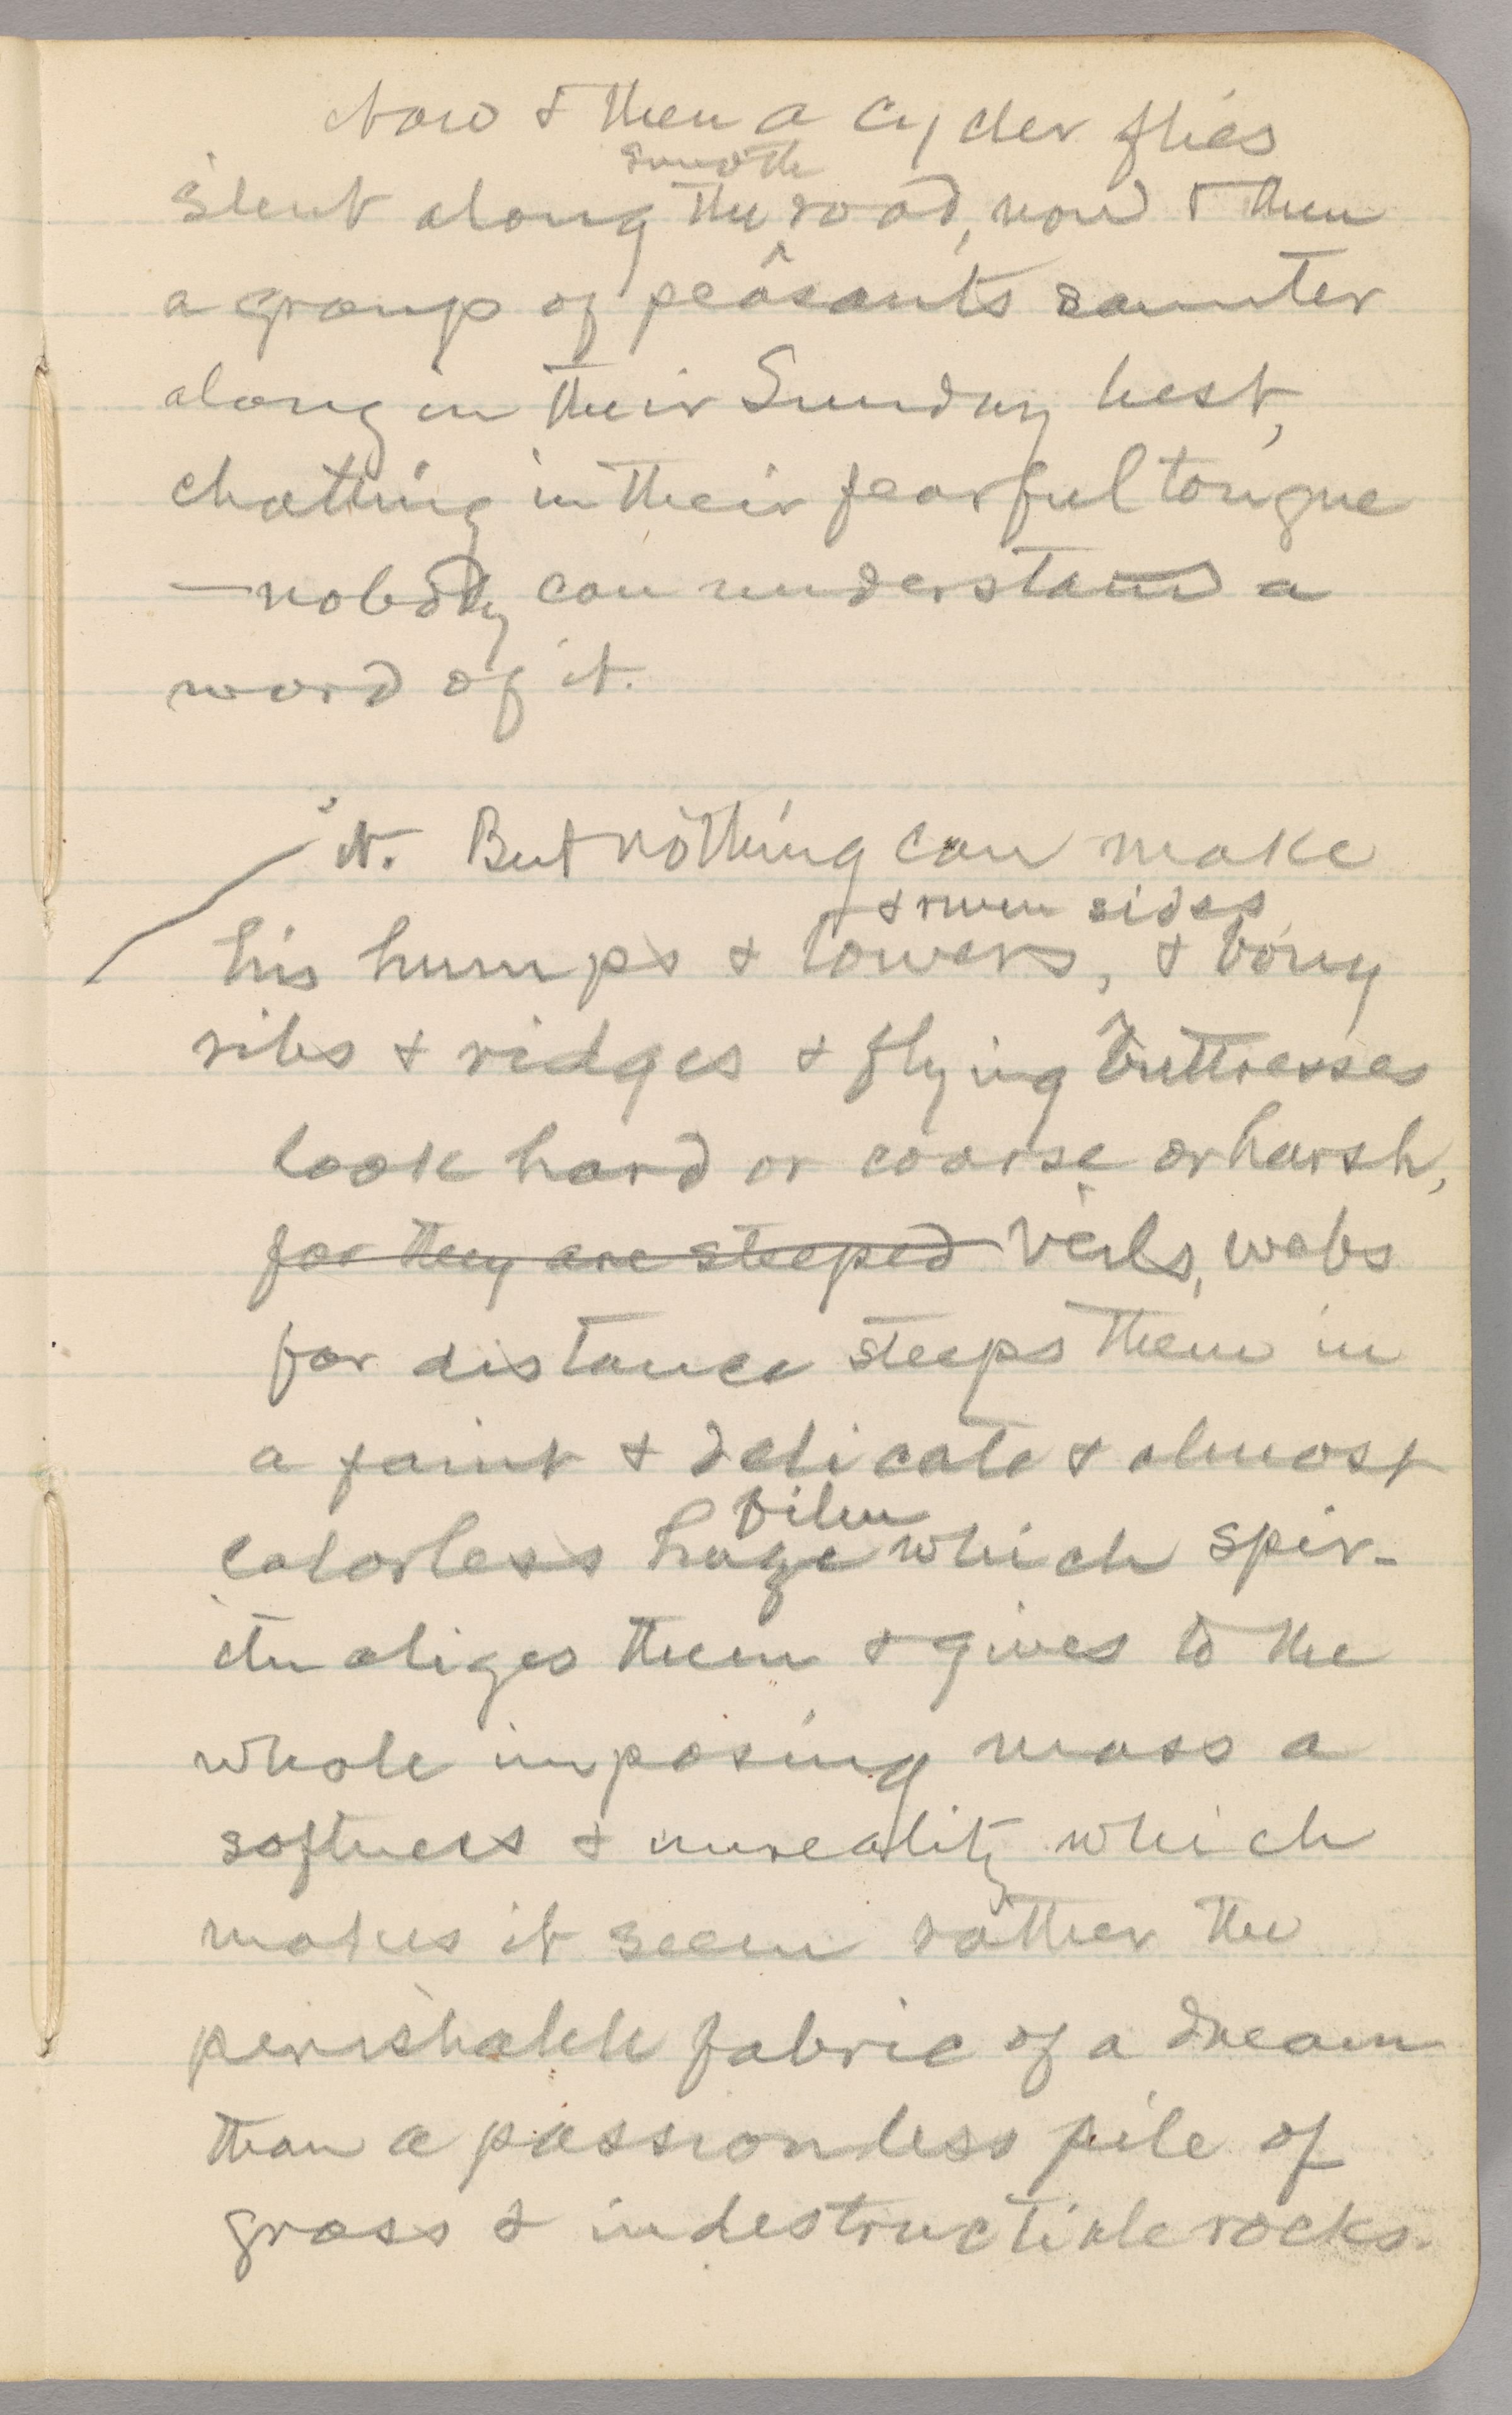 Now & then a cycler flies
smooth
silent along the road, now & then
a group of peasants saunter
along in their Sunday best,
chatting in their fearful tongue
—nobody can understand a
word of it.
it. But nothing can make
& riven sides
his humps & towers, & bony
ribs & ridges & flying buttresses
look hard or coarse or harsh,
for they are steeped veils, webs
for distance steeps them in
a faint & delicate & almost
film
colorless haze which spir-
itualizes them & gives to the
whole imposing mass a
softness & unreality which
makes it seem rather the
perishable fabric of a dream
than a passionless pile of
gross & indestructible rocks.